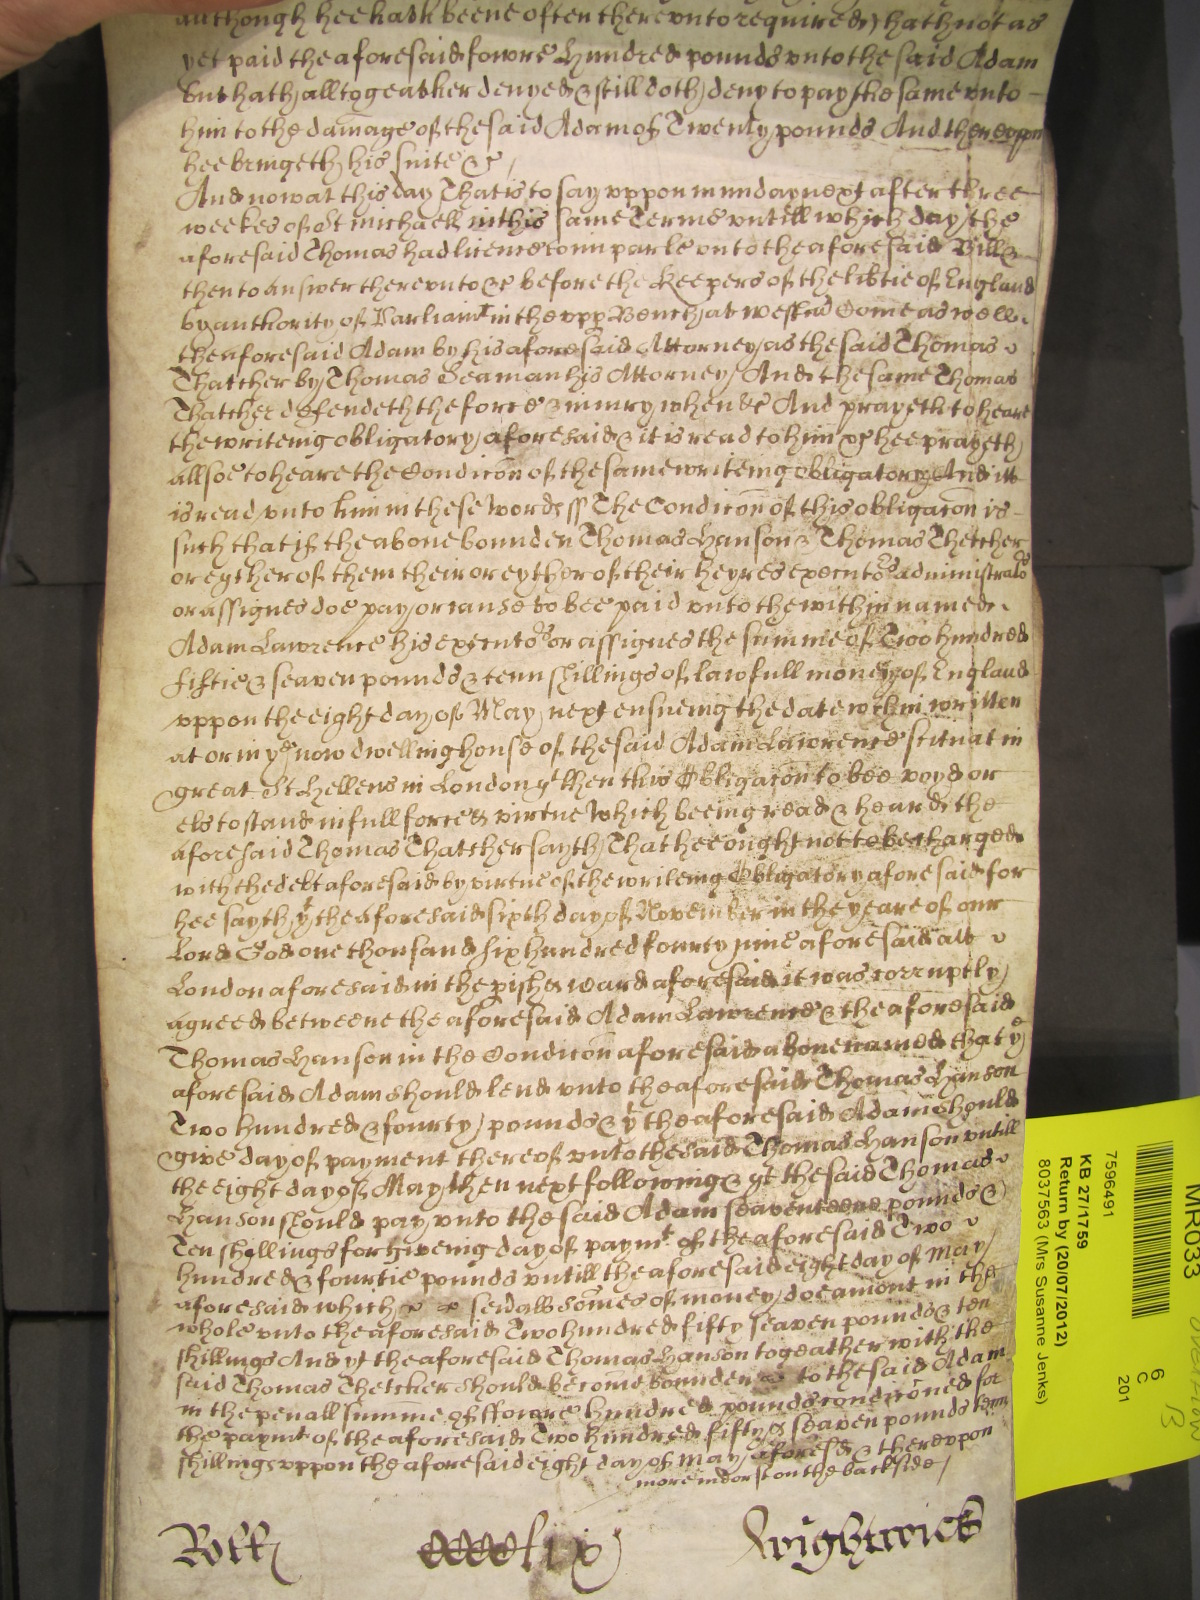 although hee hath beene often therevnto required) hath not as
yet paid the aforesaid fowre hundred pounds vnto the said Adam
but hath alltogeather denyed & still doth deny to pay the same vnto
him to the damage of the said Adam of Twenty pounds And therevppon
hee bringeth his suite &c
And now at this day That is to say vppon munday next after three
weekes of St Michaell in this same Terme vntill which day the
aforesaid Thomas had licence to imparle vnto the aforesaid Bill &
then to answer therevnto &c before the Keepers of the libtie of England
by authority of Parliamt in the vpp Bench at Westmr Come as well
the aforesaid Adam by his aforesaid Attorney as the said Thomas
Thatcher by Thomas Seaman his Attorney And the same Thomas
Thatcher defendeth the force & iniury when &c And prayeth to heare
the writeing obligatory aforesaid & it is read to him &c hee prayeth
allsoe to heare the Condicon of the same writeing obligatory And itt
is read vnto him in these words ss The Condicon of this obligacon is
such that if the above bounden Thomas Hanson & Thomas Thetcher
or eyther of them their or eyther of their heyres executors administrators
or assignes doe pay or cause to bee paid vnto the within named
Adam Lawrence his executors or assignes the summe of Two hundred
fiftie & seaven pounds & tenn shillings of lawfull money of England
vppon the eight day of May next ensueing the date within written
at or in ye now dwelling house of the said Adam Lawrence scituat in
great St Hellens in London yt then this Obligacon to bee voyd or
els to stand in full force & virtue Which beeing read & heard the
aforesaid Thomas Thatcher sayth That hee ought not to be charged
with the debt aforesaid by virtue of the writeing Obligatory aforesaid for
hee sayth yt the aforesaid sixth day of November in the yeare of our
Lord God one thousand six hundred fourty nine aforesaid att
London aforesaid in the pish & ward aforesaid it was corruptly
agreed betweene the aforesaid Adam Lawrence & the aforesaid
Thomas Hanson in the Condicon aforesaid above named that ye
aforesaid Adam should lend vnto the aforesaid Thomas Hanson
Two hundred & fourty pounds & yt the aforesaid Adam should
give day of payment thereof vnto the said Thomas Hanson vntill
the eight day of May then next following & yt the said Thomas
Hanson should pay vnto the said Adam seaventeene pounds &
Ten shillings for giveing day of paymt of the aforesaid Two
hundred & fourtie pounds vntill the aforesaid eight day of May
aforesaid which seuall somes of money doe amount in the
whole vnto the aforesaid Two hundred fifty seaven pounds & ten
shillings And yt the aforesaid Thomas Hanson togeather with the
said Thomas Thetcher should become bounden to the said Adam
in the penall summe of ffowre hundred pounds condiconed for
the paymt of the aforesaid Two hundred fifty & seaven pounds tenn
shillings vppon the aforesaid eight day of May aforesd & therevpon
more indorst on the backside
Roll
Wightwick
MR033
7596491
KB 27/1759
Return by (20/07/2012)
8037563 (Mrs Susanne Jenks)
6
C
201